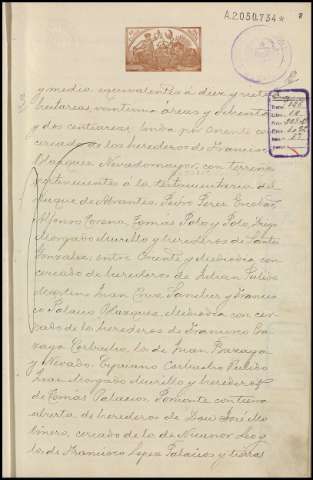 A.2.050.734*
y media equivalentes á diez y siete
hectareas, veintiuna áreas y ochenta
y dos centiareas, linda por Oriente con
cercado de los herederos de Francisco
Blazquez Nevadomayor, con terrenos
pertenecientes á la testamentaria del
Duque de Abrantes, Pedro Perez Escobar,
Alfonso Corena, Tomás Polo y Polo, Diego
Morgado Murillo y herederos de
Gonzalez; entre Oriente y Mediodia con
cercado de herederos de Julian Pulido
Martino, Juan Cruz Sanchez y Francis
co Palacio Blazquez; Mediodia con cer
cado de los herederos de Francisco Ba
zaga Corbacho, lo de Juan Bazaga
y Nevado, Cipriano Corbacho Pulido
Juan Morgado Murillo y herederos
de Tomás Palacios; Poniente con tierra
abierta de herederos de Don José Mo
linero, cercado de la de Nicanor
la de Francisco Lopez Palacios y tierras